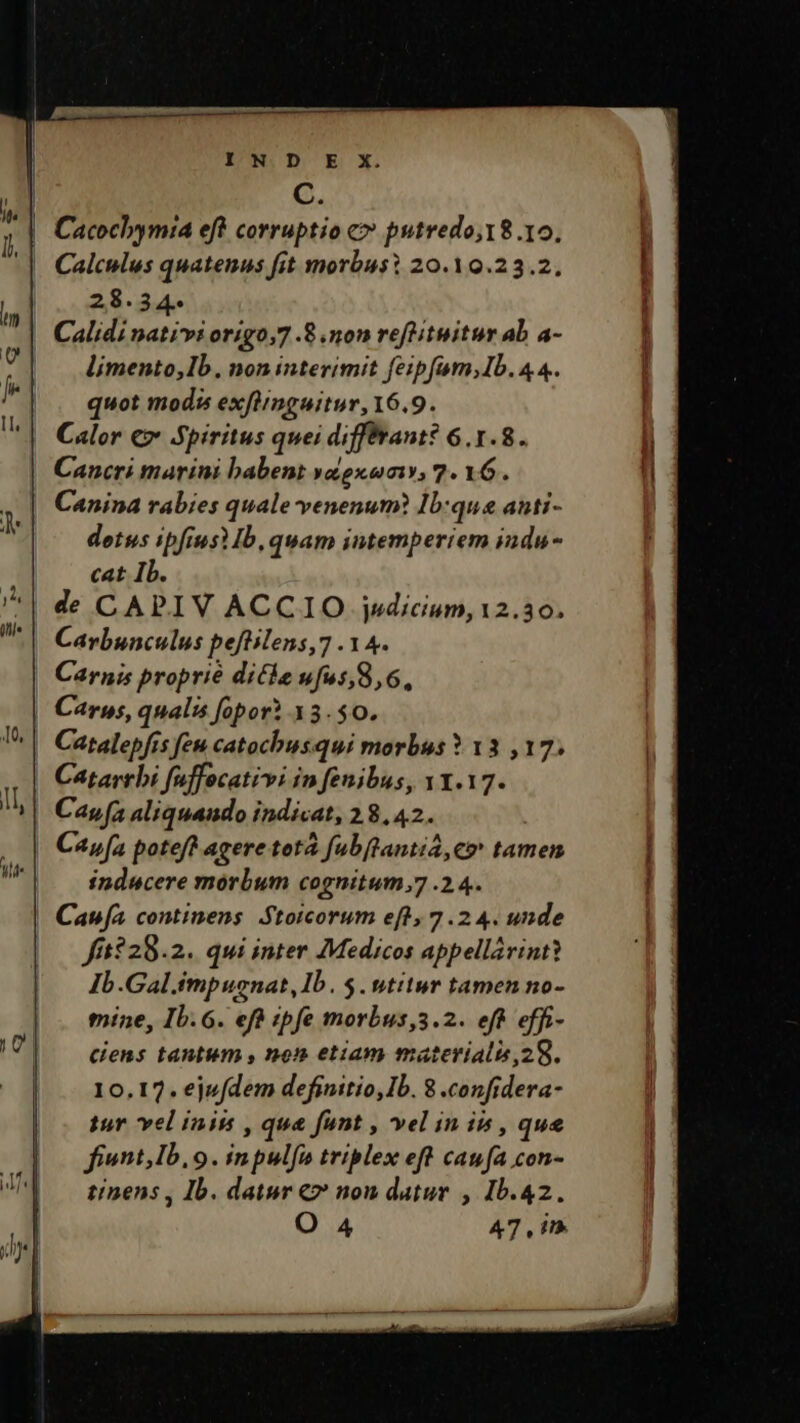 INDEX.
C.
Cacochymia eſt corruptio & putredo,18.10.
Calculus quatenus ſit morbus? 20.10.23.2.
28.34.
Calidi nativi origo,7.8.non reſtituitur ab a-
limento,Ib. non interimit ſeipſum,Ib.44.
quot modis exſtinguitur,16.9.
Calor & Spiritus quei differant? 6.1.8.
Cancri marini habent νάρκωσιν, 7.16.
Canina rabies quale venenum? Ib.quæ anti-
dotus ipſius? Ib. quam intemperiem indu-
cat Ib.
de CAPIV ACCIO judicium,12.30.
Carbunculus peſtilens,7.14.
Carnis propriè dictæ uſus,8,6.
Carus, qualis ſopor? 13.50.
Catalepſis ſeu catochus qui morbus? 13,17.
Catarrhi ſuffocativi in ſenibus, 11.17.
Cauſa aliquando indicat, 28.42.
Cauſa poteſt agere totâ ſubſtantiâ,& tamen
inducere morbum cognitum,7.24.
Cauſa continens Stoicorum eſt, 7.24. unde
ſit? 28.2. qui inter Medicos appellàrint?
Ib.Gal.impugnat,Ib. 5. utitur tamen no-
mine, Ib.6. eſt ipſe morbus,3.2. eſt effi-
ciens tantum, non etiam materialis,28.
10.17. ejuſdem definitio,Ib. 8.conſidera-
tur vel in iis, quæ ſunt, vel in iis, quæ
fiunt,Ib.9. in pulſu triplex eſt cauſa con-
tinens, Ib. datur & non datur, Ib.42.
O 4 47.in